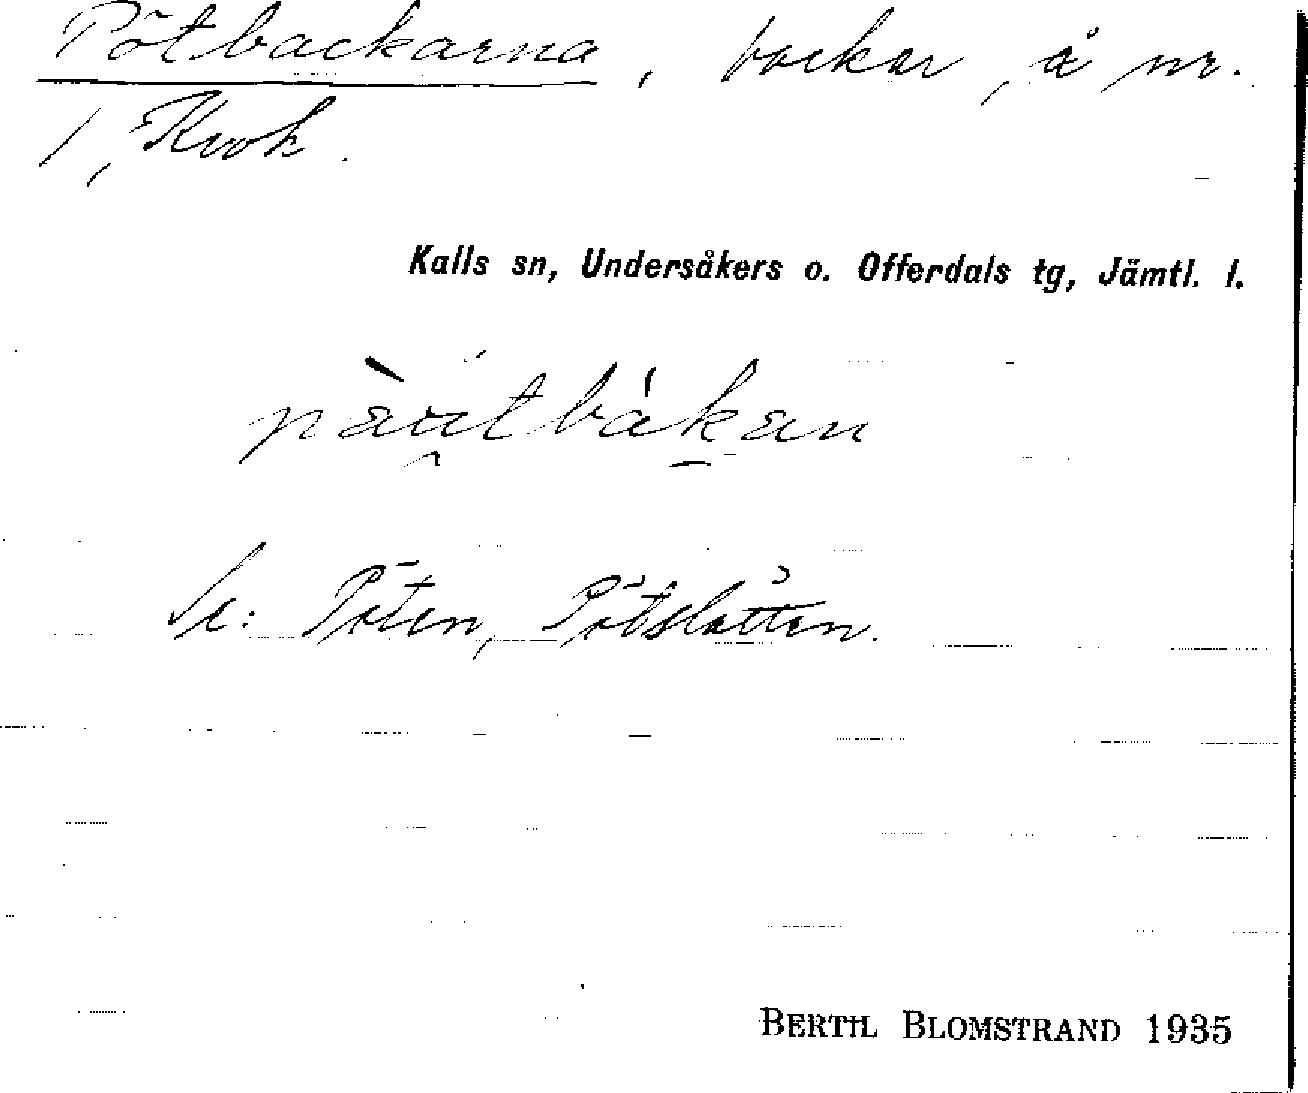 Pötbackarna, backar, å nr.
1, Krok.
Kalls sn, Undersåkers o. Offerdals tg, Jämtl. l.
pàu̯tbákan
Se: Pöten, Pötslåtten.
BERTIL BLOMSTRAND 1935